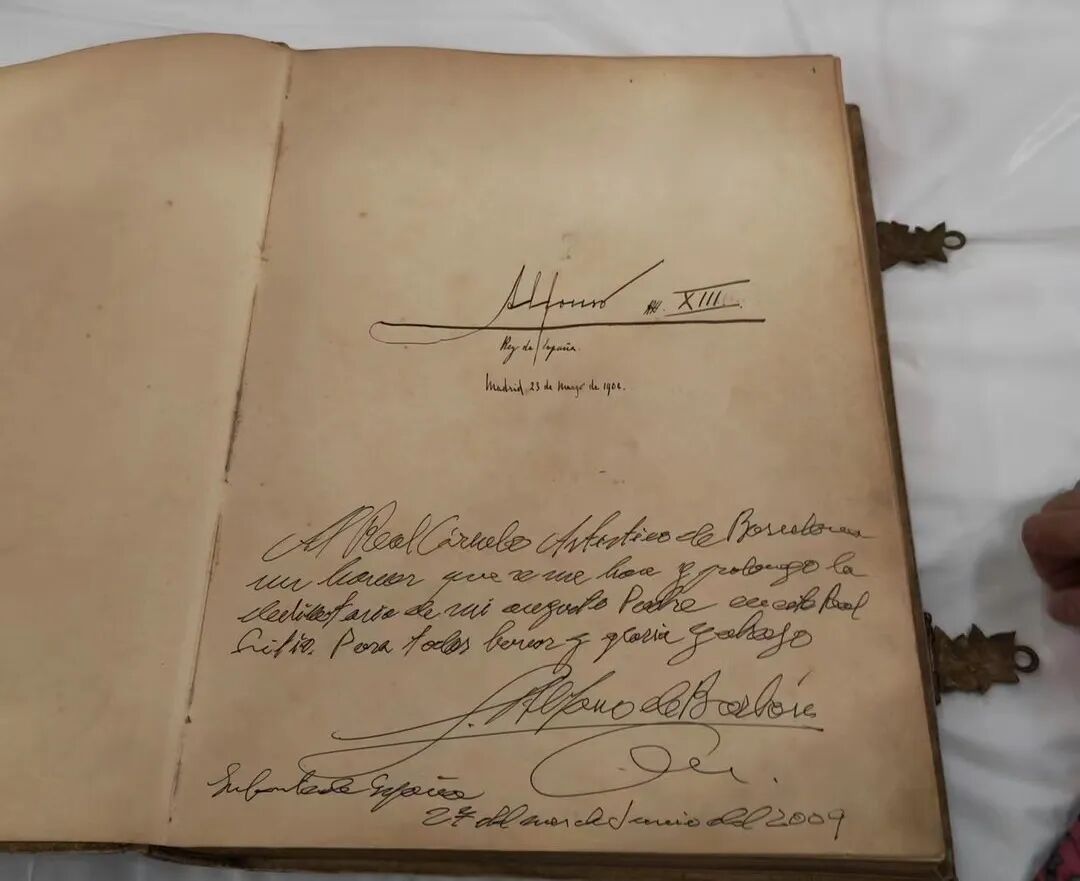 Alfonso XIII.
Rey de España.
Madrid, 23 de Marzo de 190
Al Real Círculo Artístico de Barcelona
un honor que se me hace y prolongo la
de mi augusto Padre en este Real
Sitio. Para todos honor y gloria y
Alfonso de Borbón
Infante de España
27 del mes de Junio del 2009